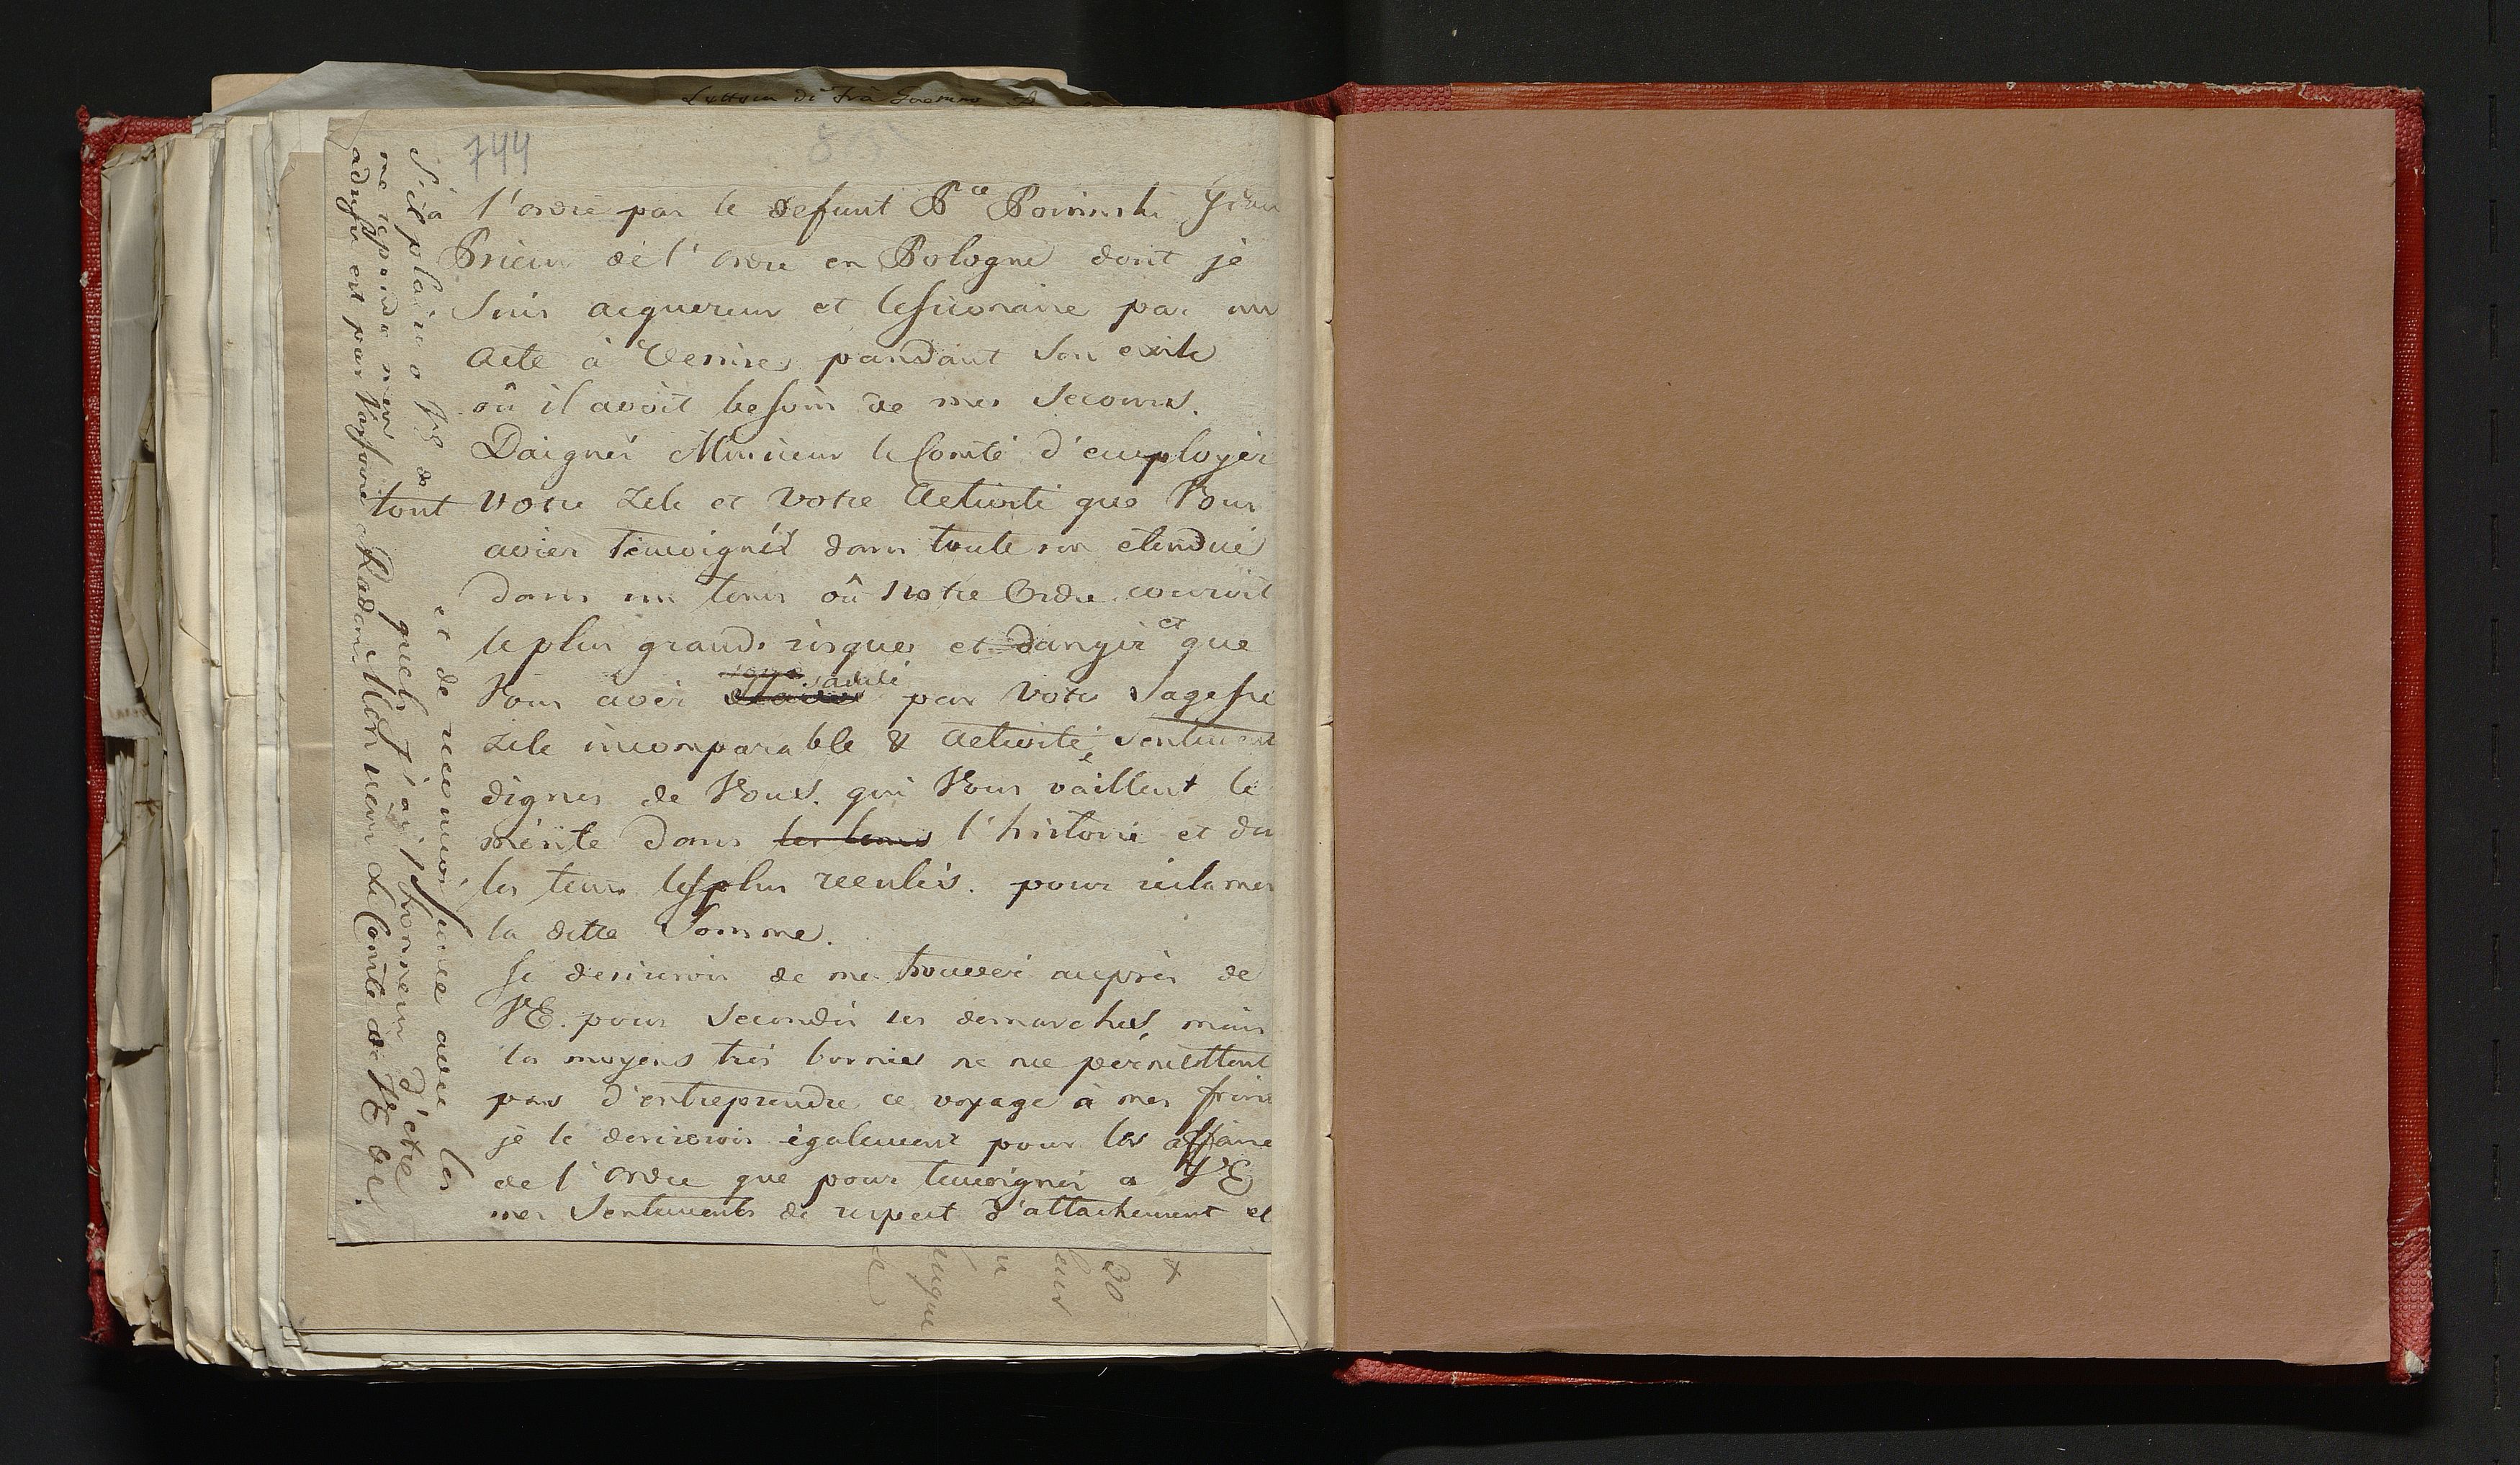 Lettera di Frà Gaetano
744
l'ordre par le defunt P^ce Poninski Gran
Prieur de l'ordre en Pologne dont je
Suis acquereur et Cessionaire par un
Acte à Venise pandant Son exile
oû il avoit besoin de mes Secours.
Daignéz Monsieur le Comte d'employer
tout votre Zele et votre Activité que Vous
aviez temoignéz dans toute son etendue
dans un tems oû Notre Ordre couroit
le plus grands risques et danger et que
Vous avez sauvé par Votre Sagesse
Zele incomparable & Activité, Sentiment
dignes de Vous. qui Vous vaillent le
mérite dans les tems l'histoire et dan
les tems les plus reculés. pour reclamer
la ditte Somme.
Je desirerois de me trouver auprès de
VE. pour Seconder ses demarches, mais
les moyens très bornés ne me permettent
pas d'entreprendre ce voyage à mes frais
je le desirerois également pour les affaire
de l'ordre que pour temoigner a VE
mes Sentiments de respect d'attachement et
et de reconnoissance avec les
quels j'ai l'honneur d'etre
S'il plaira a VE de
me repondre mon
adresse est par Varsovie a Radom. Mon nom Le Comte de
30